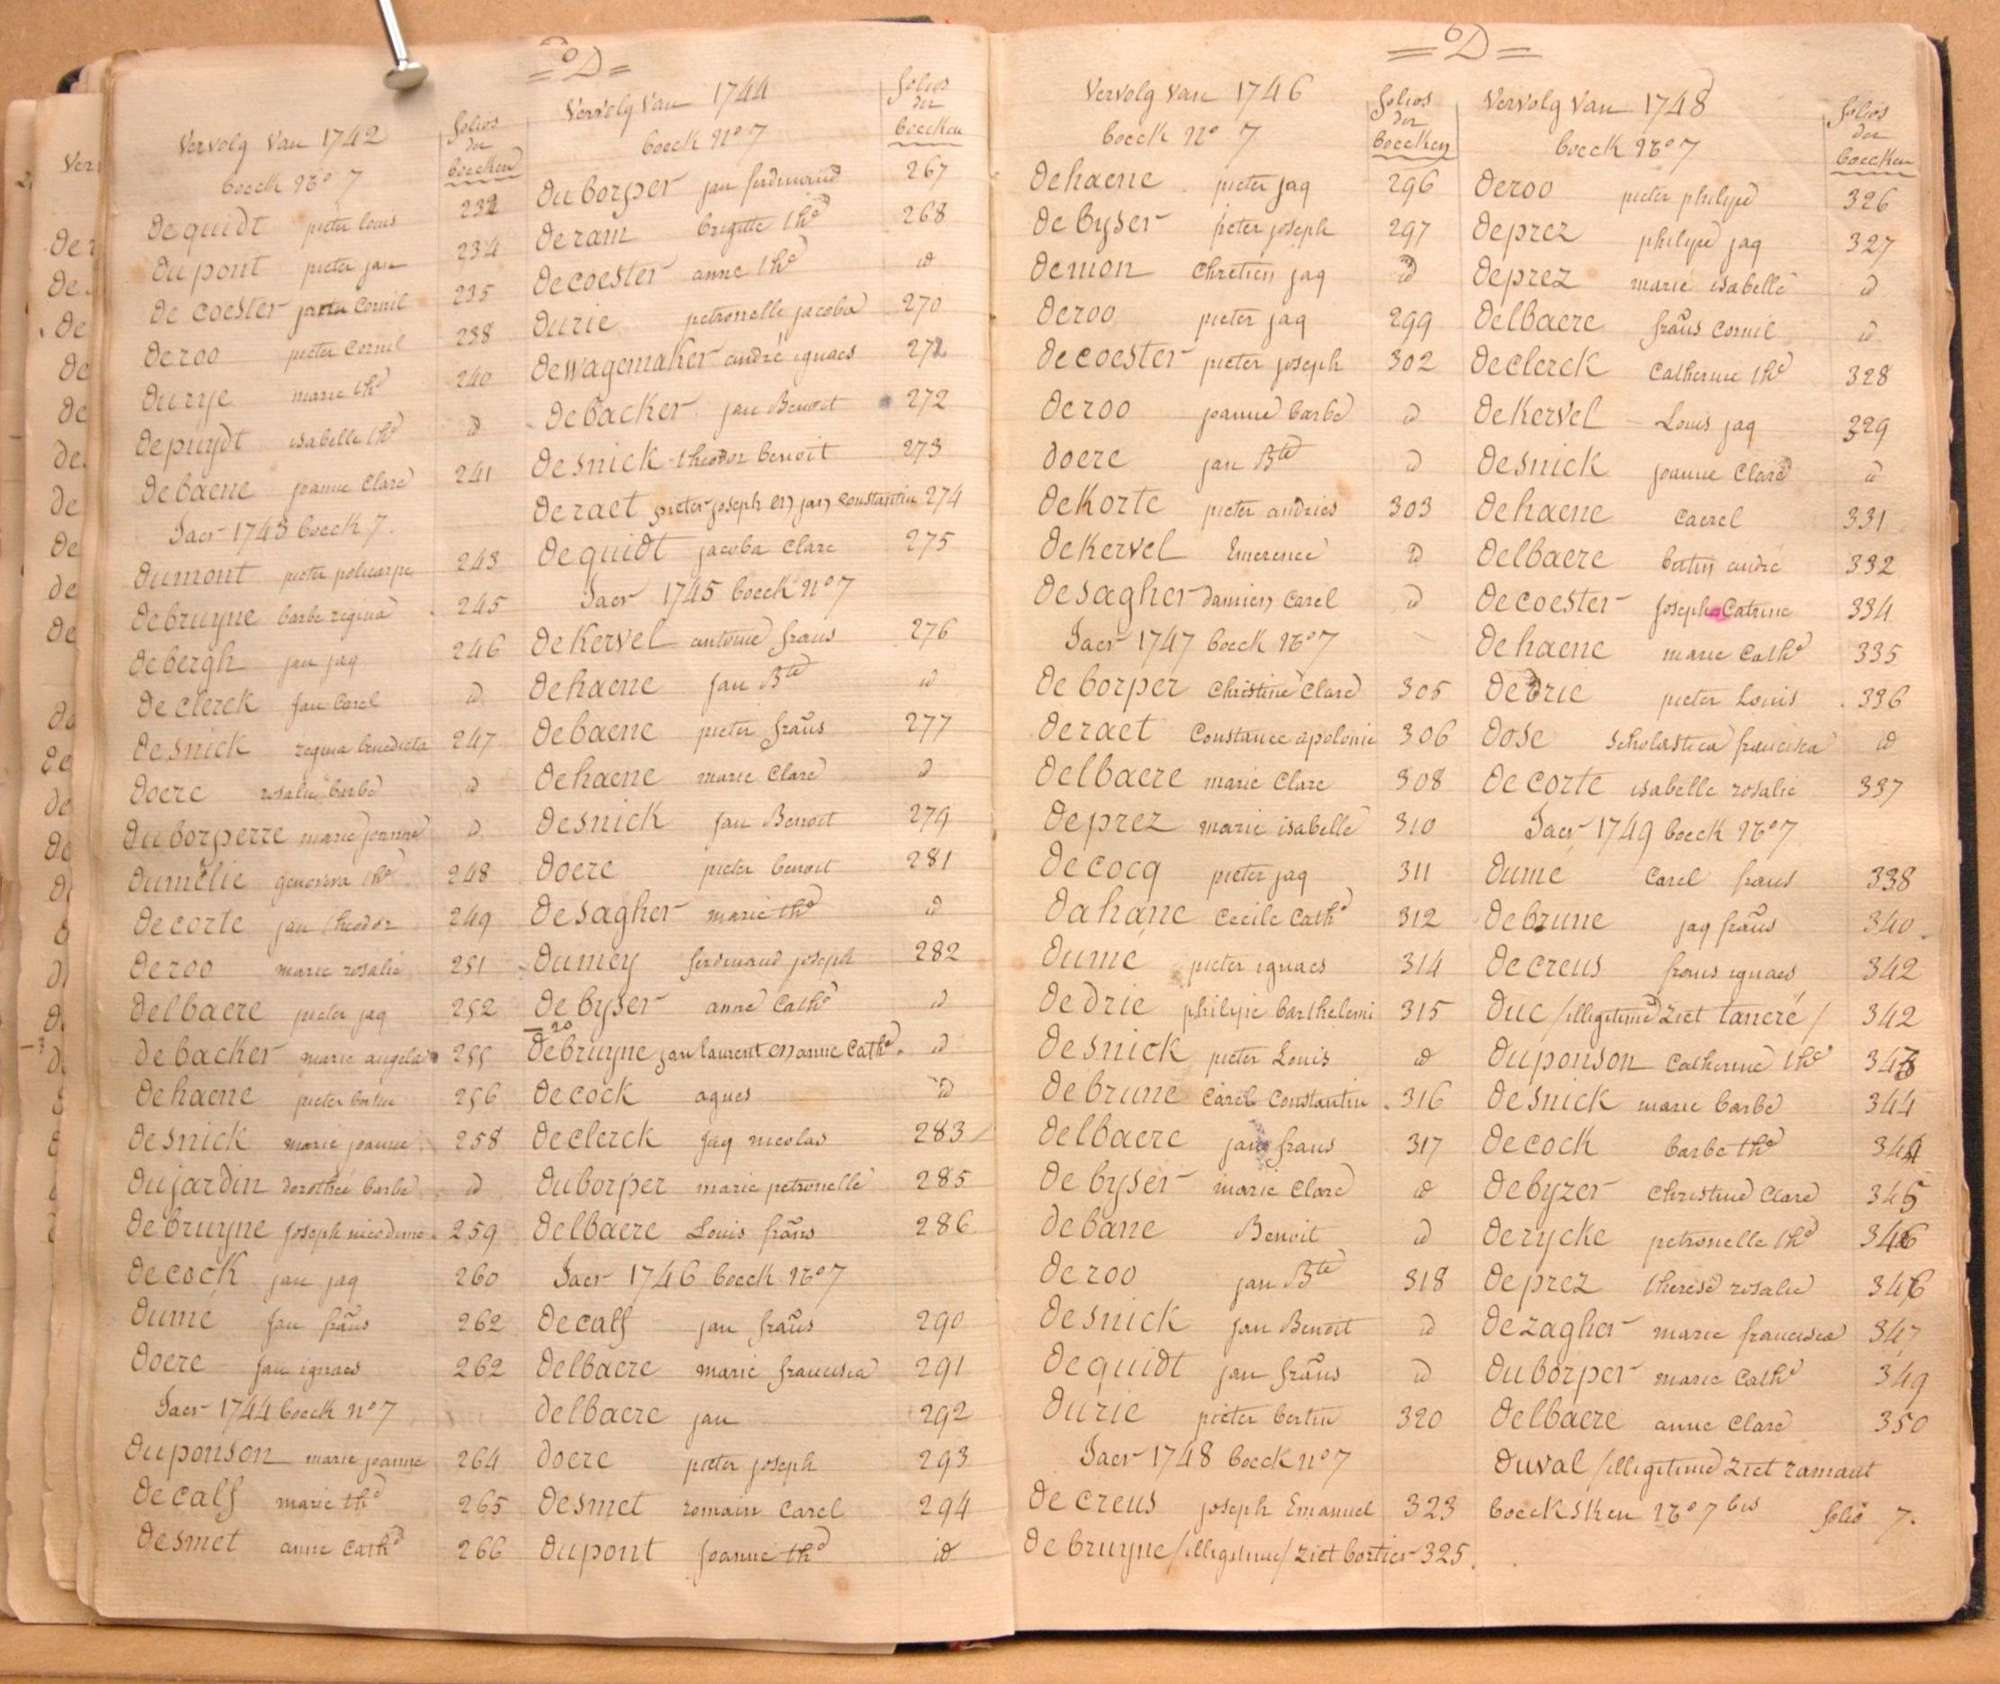 = D =
Vervolg Van 1742
boeck N° 7
folios der boecken
Dequidt pieter louis 232
Dupont pieter jan 234
De coester pieter Cornil 235
Deroo pieter Cornil 238
Durye marie the 240
Depuydt isabelle the id
Debaene joanne Clare 241
Jaer 1743 boeck 7.
Dumont pieter policarpe 243
Debruyne barbe regina 245
Debergh jan jaq 246
Declerck jan Carel id
Desnick regina benedicta 247
Doere rosalie barbe id
Duborperre marie joanne id
Dumélie genoveva the 248
Decorte jan theodor 249
Deroo marie rosalie 251
Delbaere pieter jaq 252
Debacker marie angela 255
Dehaene pieter bertin 256
Desnick marie joanne 258
Dujardin dorothée barbe id
Debruyne joseph nicodeme 259
Decock jan jaq 260
Dumé jan frañs 262
Doere jan ignaes 262
Jaer 1744 boeck n° 7
Duponson marie joanne 264
Decalf marie the 265
Desmet anne Cathe 266
Vervolg Van 1744
boeck N° 7
folios der boecken
Duborper jan ferdinand 267
Deram brigitte the 268
Decoester anne the id
Durie petronelle jacoba 270
Dewagemaker andré ignaes 272
Debacker jan Benoit 272
Desnick theodor benoit 273
Deraet pieter joseph en jan Constantin 274
Dequidt jacoba Clare 275
Jaer 1745 boeck N° 7
Dekervel antoine frans 276
Dehaene jan Bte id
Debaene pieter frañs 277
Dehaene marie Clare id
Desnick jan Benoit 279
Doere pieter benoit 281
Desagher marie the id
Dumey ferdinand joseph 282
Debyser anne Cathe id
Debruyne jan laurent en anne Cathe id
Decock agnes id
Declerck jaq nicolas 283
Duborper marie petronelle 285
Delbaere Louis frañs 286
Jaer 1746 boeck N° 7
Decalf jan frañs 290
Delbaere marie francisca 291
Delbaere jan 292
Doere pieter joseph 293
Desmet romain Carel 294
Dupont joanne the id
= D =
Vervolg Van 1746
boeck N° 7
folios der boecken
Dehaene pieter jaq 296
De byser pieter joseph 297
Demon Chretien jaq id
Deroo pieter jaq 299
Decoester pieter joseph 302
Deroo joanne barbe id
Doere jan Bte id
Dekorte pieter andries 303
Dekervel Emerence id
Desagher damien Carel id
Jaer 1747 boeck N° 7
De borper Christine Clare 305
Deraet Constance apolonie 306
Delbaere marie Clare 308
Deprez marie isabelle 310
Decocq pieter jaq 311
Dahane Cecile Cathe 312
Dumé pieter ignaes 314
Dedrie philipe barthelemi 315
Desnick pieter Louis id
Debrune Carel Constantin 316
Delbaere jan frans 317
De byser marie Clare id
Debane Benoit id
Deroo jan Bte 318
Desnick jan Benoit id
Dequidt jan frañs id
Durie pieter bertin 320
Jaer 1748 boeck n° 7
De creus joseph Emanuel 323
Debruyne /illigitime/ ziet bortier 325.
Vervolg Van 1748
boeck N° 7
folios der boecken
Deroo pieter philipe 326
Deprez philipe jaq 327
Deprez marie isabelle id
Delbaere frañs Cornil id
Declerck Catherine the 328
Dekervel Louis jaq 329
Desnick joanne Clare id
Dehaene Caerel 331
Delbaere bertin andré 332
Decoester Joseph Catrine 334
Dehaene marie Cathe 335
Dedrie pieter Louis 336
Dose Scholastica francisca id
Decorte isabelle rosalie 337
Jaer 1749 boeck N° 7
Dumé Carel frans 338
Debrune jaq frañs 340
Decreus frans ignaes 342
Duc /illigitime ziet tancré/ 342
Duponson Catherine the 343
Desnick marie barbe 344
Decock barbe the 344
Debyzer Christine Clare 345
Derycke petronelle the 346
Deprez therese rosalie 346
Dezagher marie francisca 347
Duborper marie Cathe 349
Delbaere anne Clare 350
Duval /illigitime ziet ramaut
boecksken N° 7 bis folio 7.